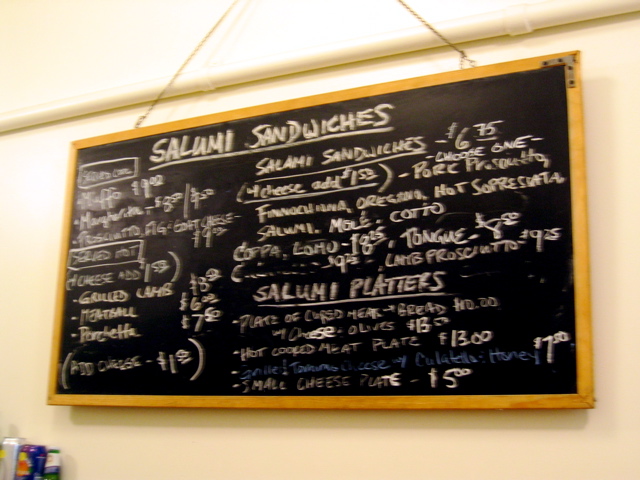 SALUMI SANDWICHES
SERVED COLD
- Muffo $9.00
- Margherita - $8.50
- PROSCIUTTO, FIG + GOAT CHEESE -
SERVED HOT
(CHEESE ADD $1.50)
- GRILLED LAMB
- MEATBALL
- Porchetta
(ADD CHEESE - $1.50)
SALAMI SANDWICHES - $6.75
(w/ cheese add $1.50) - CHOOSE ONE -
- PORK PROSCIUTTO,
FINNOCHIONA, OREGANO, HOT SOPRESSATA
SALUMI, MOLE, COTTO
COPPA, LOMO - $8.25, TONGUE - $8.50
$9.25 LAMB PROSCIUTTO - $9.25
SALUMI PLATTERS
- PLATE OF CURED MEAT + BREAD $10.00
w/ Cheese + OLIVES $13.50
- HOT COOKED MEAT PLATE $13.00
- Tomme Cheese w/ Culatello + Honey $7.50
- SMALL CHEESE PLATE - $5.00